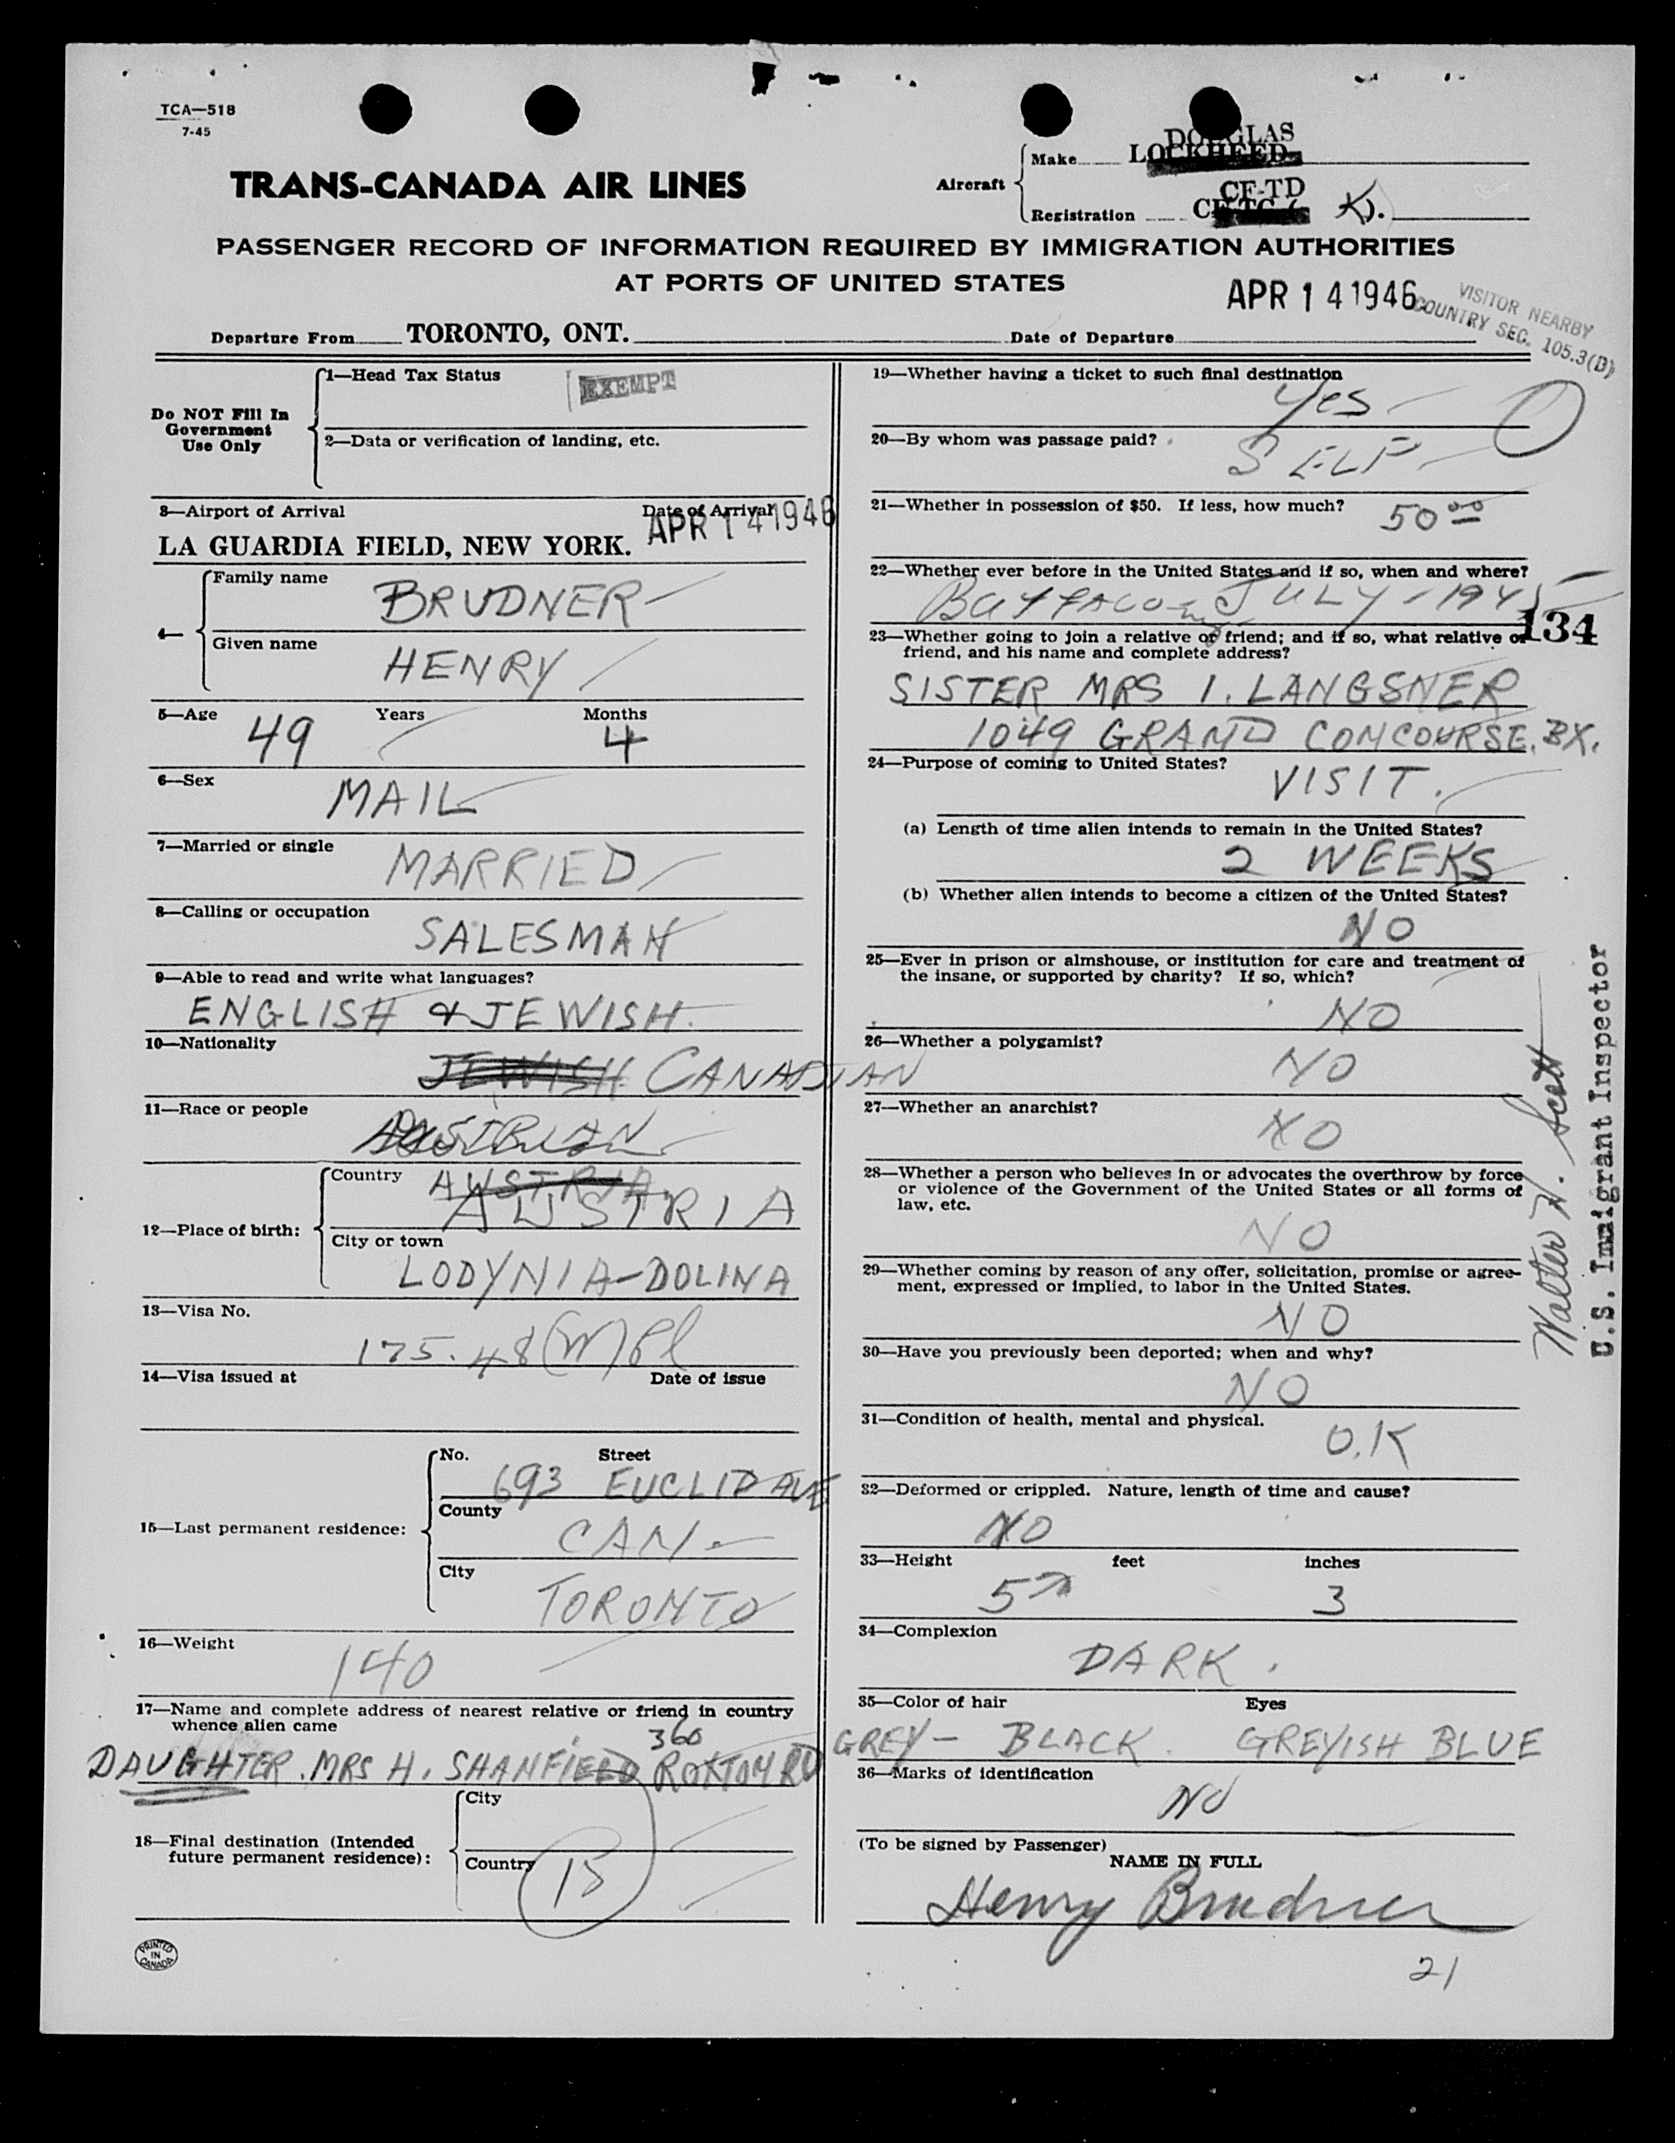 TCA—518
7-45
TRANS-CANADA AIR LINES
Aircraft
Make DOUGLAS
LOCKHEED
Registration CF-TD
CF-TC K).
PASSENGER RECORD OF INFORMATION REQUIRED BY IMMIGRATION AUTHORITIES
AT PORTS OF UNITED STATES
APR 14 1946
VISITOR NEARBY
COUNTRY SEC. 105.3(B)
Departure From TORONTO, ONT.
Date of Departure
Do NOT Fill In
Government
Use Only
1—Head Tax Status EXEMPT
2—Data or verification of landing, etc.
3—Airport of Arrival Date of Arrival
LA GUARDIA FIELD, NEW YORK. APR 14 1946
4—
Family name BRUDNER
Given name HENRY
5—Age 49 Years Months 4
6—Sex MAIL
7—Married or single MARRIED
8—Calling or occupation SALESMAN
9—Able to read and write what languages?
ENGLISH & JEWISH.
10—Nationality JEWISH CANADIAN
11—Race or people AUSTRIAN
12—Place of birth:
Country AUSTRIA
AUSTRIA
City or town
LODYNIA-DOLINA
13—Visa No.
175.48(W)Pl
14—Visa issued at Date of issue
15—Last permanent residence:
No. Street
693 EUCLID AVE
County
CAN
City
TORONTO
16—Weight 140
17—Name and complete address of nearest relative or friend in country
whence alien came
360
DAUGHTER. MRS H. SHANFIELD ROXTON RD
18—Final destination (Intended
future permanent residence):
City
Country
B
PRINTED
IN
CANADA
19—Whether having a ticket to such final destination
Yes
O
20—By whom was passage paid?
SELF
21—Whether in possession of $50. If less, how much? 50 00
22—Whether ever before in the United States and if so, when and where?
BUFFALO - NY JULY - 1945
134
23—Whether going to join a relative or friend; and if so, what relative or
friend, and his name and complete address?
SISTER MRS I. LANGSNER
1049 GRAND CONCOURSE. BX.
24—Purpose of coming to United States? VISIT.
(a) Length of time alien intends to remain in the United States?
2 WEEKS
(b) Whether alien intends to become a citizen of the United States?
NO
25—Ever in prison or almshouse, or institution for care and treatment of
the insane, or supported by charity? If so, which?
NO
26—Whether a polygamist?
NO
27—Whether an anarchist?
NO
28—Whether a person who believes in or advocates the overthrow by force
or violence of the Government of the United States or all forms of
law, etc.
NO
29—Whether coming by reason of any offer, solicitation, promise or agree-
ment, expressed or implied, to labor in the United States.
NO
30—Have you previously been deported; when and why?
NO
31—Condition of health, mental and physical.
O.K
32—Deformed or crippled. Nature, length of time and cause?
NO
33—Height feet inches
5 3
34—Complexion
DARK.
35—Color of hair Eyes
GREY - BLACK. GREYISH BLUE
36—Marks of identification
NO
(To be signed by Passenger)
NAME IN FULL
Henry Brudner
21
Walter H. Scott
U.S. Immigrant Inspector